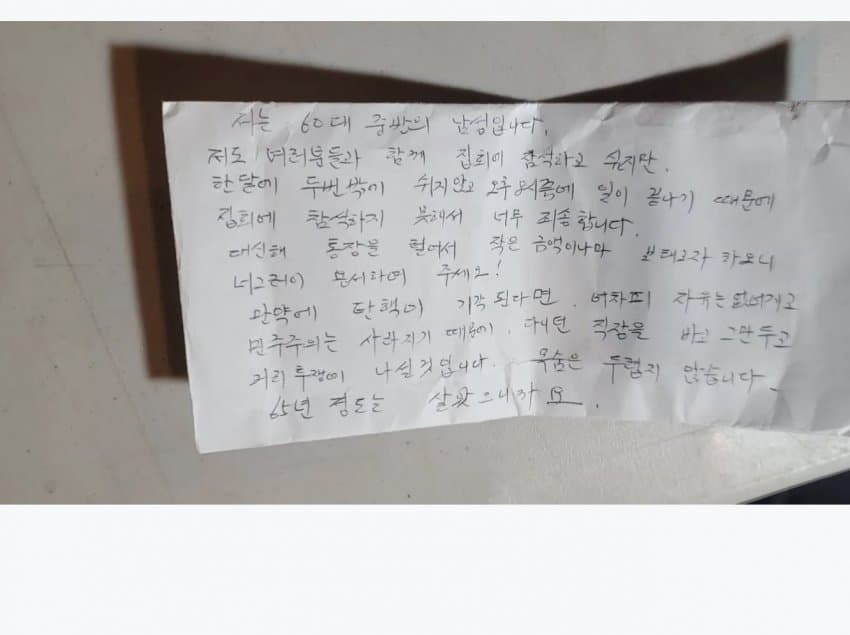 저는 60대 중반의 남성입니다.
저도 여러분들과 함께 집회에 참석하고 싶지만.
한달에 두번밖에 쉬지않고 오후 8시쯤에 일이 끝나기 때문에
집회에 참석하지 못해서 너무 죄송합니다.
대신해 통장을 털어서 작은 금액이나마 보태고자 하오니
너그러이 주세요!
만약에 탄핵이 기각 된다면. 어차피 자유는 없어지고
민주주의는 사라지기 때문에. 다니던 직장을 바로 그만두고
거리 투쟁에 나설것입니다. 목숨은 두렵지 않습니다
65년 정도는 살았으니까요.